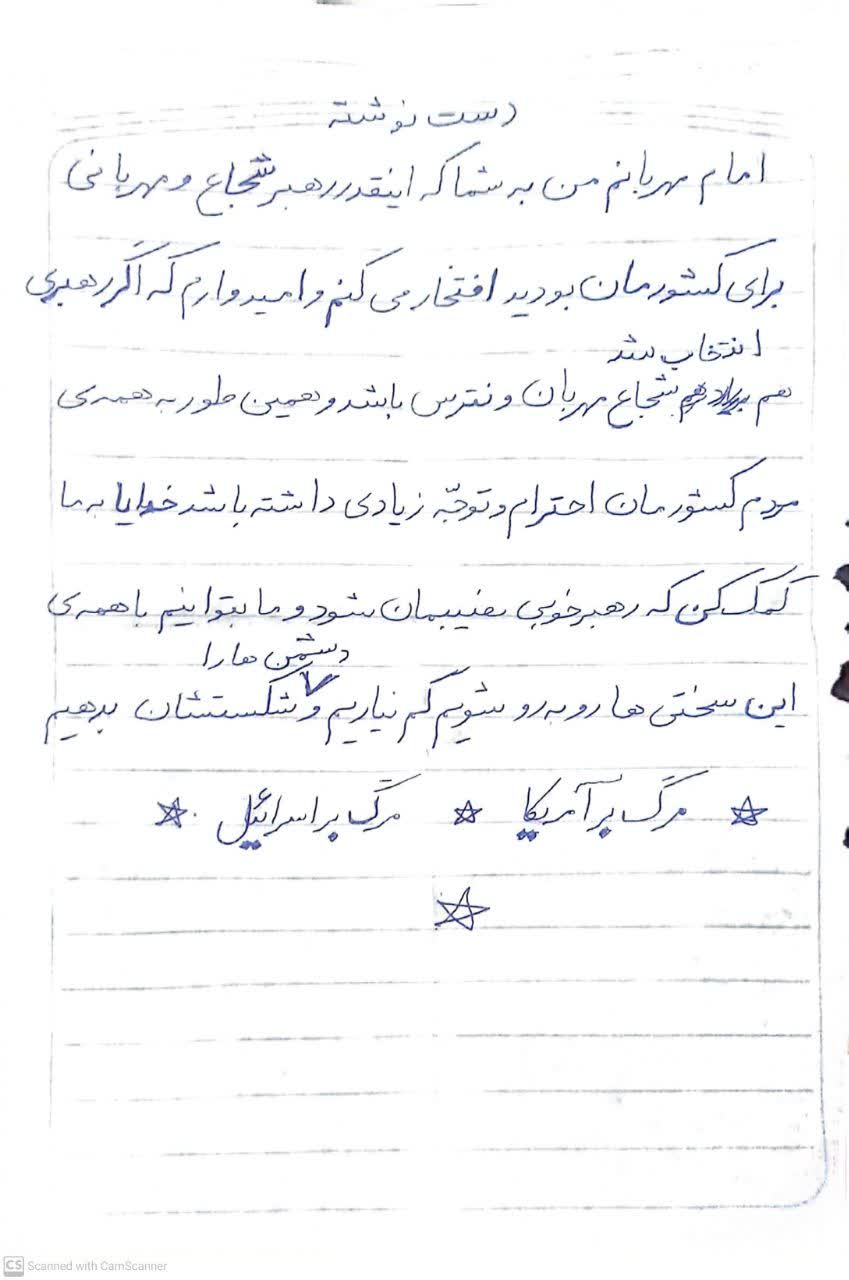 دست نوشته
امام مهربانم من به شما که اینقدر رهبر شجاع و مهربانی
برای کشورمان بودید افتخار می کنم و امیدوارم که اگر رهبری
انتخاب شد
هم شجاع مهربان و نترس باشد و همین طور به همه ی
مردم کشورمان احترام و توجّه زیادی داشته باشد خدایا به ما
کمک کن که رهبر خوبی نصیبمان شود و ما بتوانیم با همه ی
دشمن ها را
این سختی ها رو به رو شویم کم نیاریم و شکستشان بدهیم
مرگ بر آمریکا مرگ بر اسرائیل
CS Scanned with CamScanner